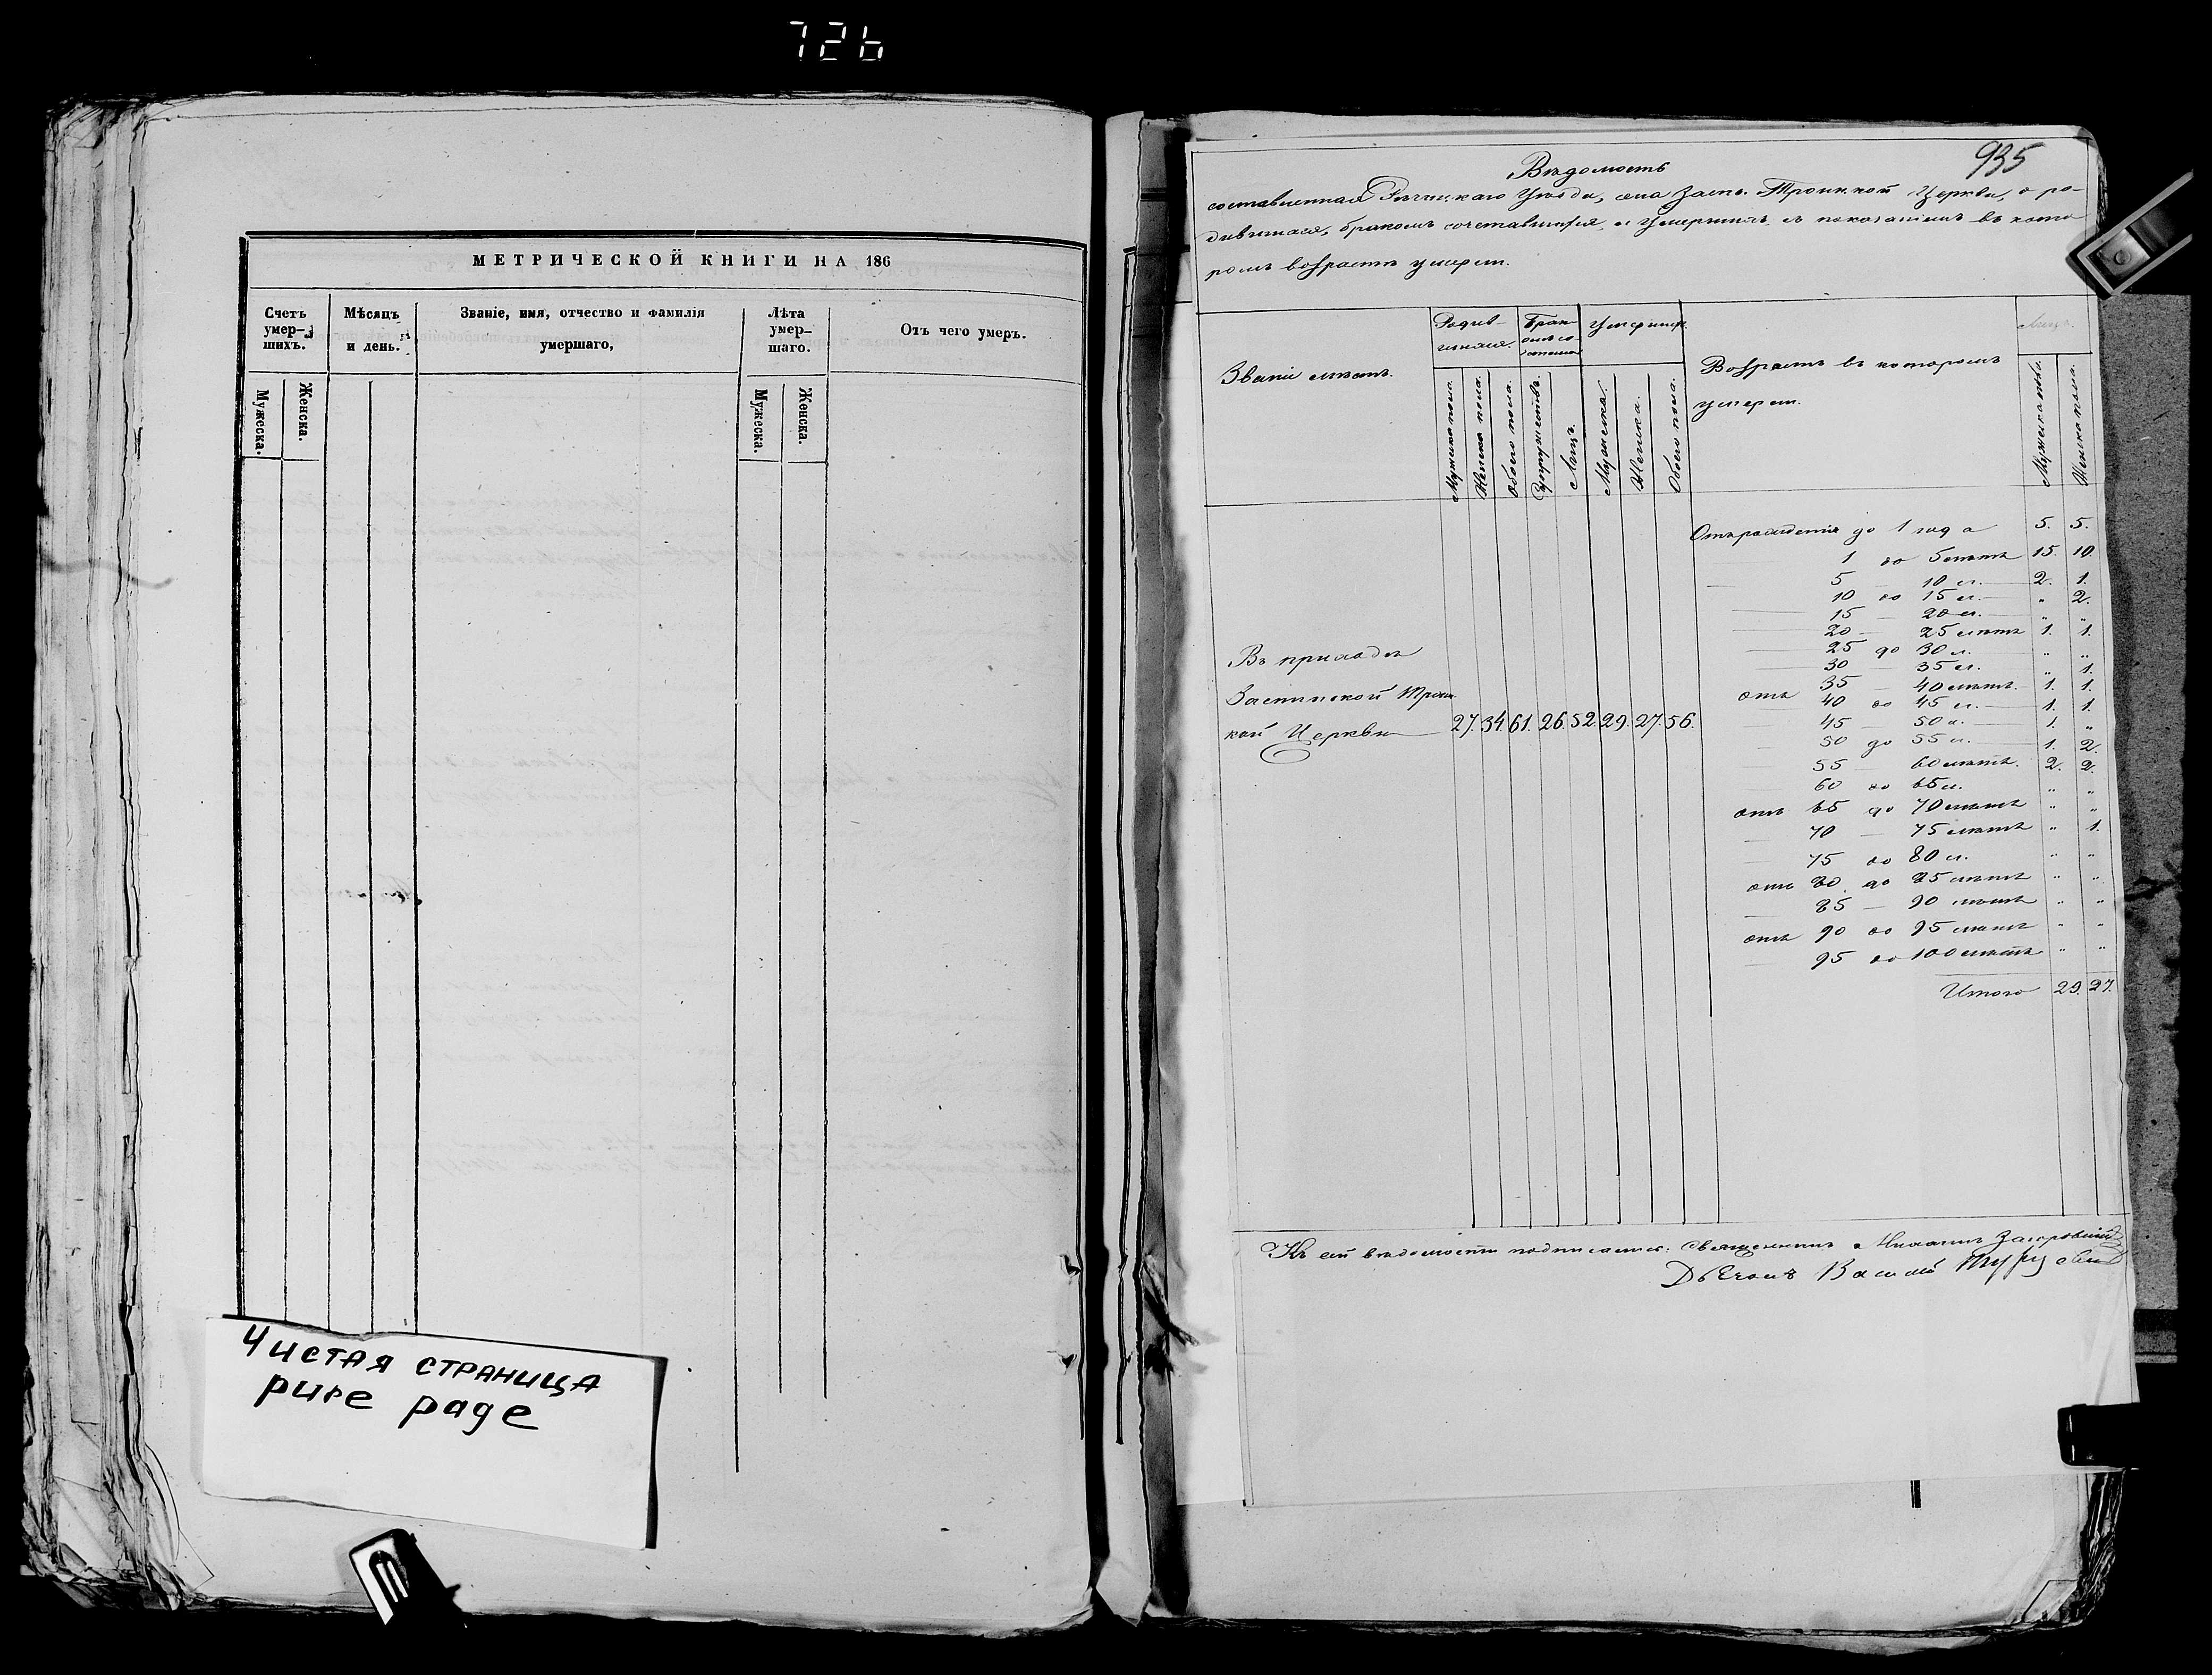 726
МЕТРИЧЕСКОЙ КНИГИ НА 186
Счетъ умер-шихъ.
Мѣсяцъ и день.
Званіе, имя, отчество и фамилія умершаго,
Лѣта умер-шаго.
Отъ чего умеръ.
Мужеска.
Женска.
Мужеска.
Женска.
Чистая страница
pure page
935
Вѣдомость
составленная Рѣчицкаго Уѣзда, села Троицкой Церкви, о ро-
дившихся, бракомъ сочетавшихся, и Умершихъ съ показаніемъ въ кото
ромъ возрастѣ умерли.
Званіе мѣстъ.
Родив-
шихся.
Умерших
Возрастъ въ которомъ
умерли.
Лицъ.
Мужеска пола.
Женска пола.
Обоего пола.
Супружествъ.
Лицъ.
Мужеска.
Женска.
Обоего пола.
Мужеска пола.
Женска пола.
Отъ рожденія до 1 года 5. 5.
1 до 5 лѣтъ 15. 10.
5 — 10 л. 2. 1.
10 до 15 л. „ 2.
15 — 20 л. „ „
20 — 25 лѣтъ 1. 1.
25 до 30 л. „ „
30 — 35 л. „ 1.
отъ 35 — 40 лѣтъ. 1. 1.
40 до 45 л. 1. 1.
45 — 50 л. 1. „
50 до 55 л. 1. 2.
55 — 60 лѣтъ. 2. 2.
60 до 65 л. „ „
отъ 65 до 70 лѣтъ „ „
70 — 75 лѣтъ „ 1.
75 до 80 л. „ „
отъ 80 до 85 лѣтъ „ „
85 — 90 лѣтъ „ „
отъ 90 до 95 лѣтъ „ „
95 до 100 лѣтъ „ „
Итого 29. 27.
Въ приходѣ
Троиц-
кой Церкви 27. 34. 61. 26. 52. 29. 27. 56.
Къ сей вѣдомости подписались: Священникъ Михаилъ
Дьячокъ Василій